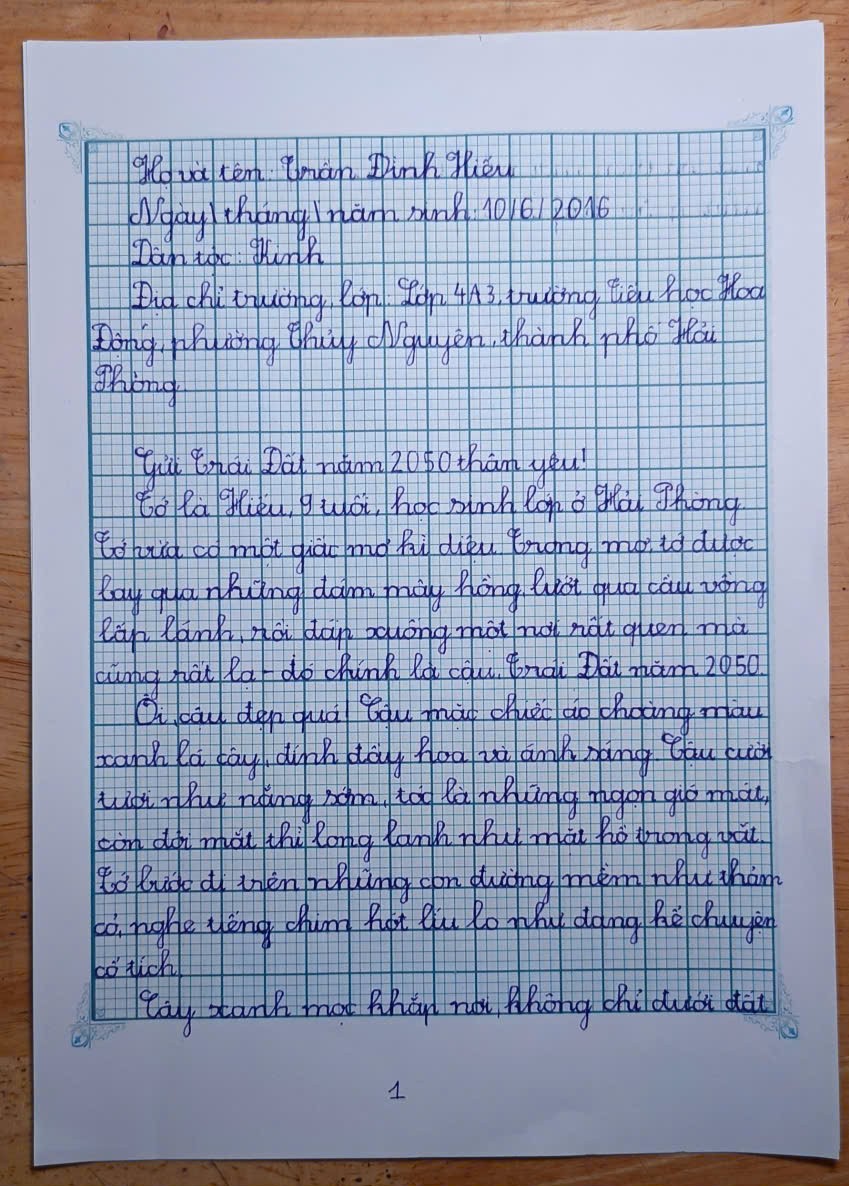 Họ và tên: Trần Đình Hiếu
Ngày\tháng\năm sinh: 10/6/2016
Dân tộc: Kinh
Địa chỉ trường, lớp: Lớp 4A3, trường Tiểu học Hoa
Động, phường Thủy Nguyên, thành phố Hải
Phòng.
Gửi Trái Đất năm 2050 thân yêu!
Tớ là Hiếu, 9 tuổi, học sinh lớp ở Hải Phòng.
Tớ vừa có một giấc mơ kì diệu. Trong mơ, tớ được
bay qua những đám mây hồng, lướt qua cầu vồng
lấp lánh, rồi đáp xuống một nơi rất quen mà
cũng rất lạ – đó chính là cậu, Trái Đất năm 2050.
Ôi, cậu đẹp quá! Cậu mặc chiếc áo choàng màu
xanh lá cây, đính đầy hoa và ánh sáng. Cậu cười
tươi như nắng sớm, tóc là những ngọn gió mát,
còn đôi mắt thì long lanh như mặt hồ trong vắt.
Tớ bước đi trên những con đường mềm như thảm
cỏ, nghe tiếng chim hót líu lo như đang kể chuyện
cổ tích.
Cây xanh mọc khắp nơi, không chỉ dưới đất
1